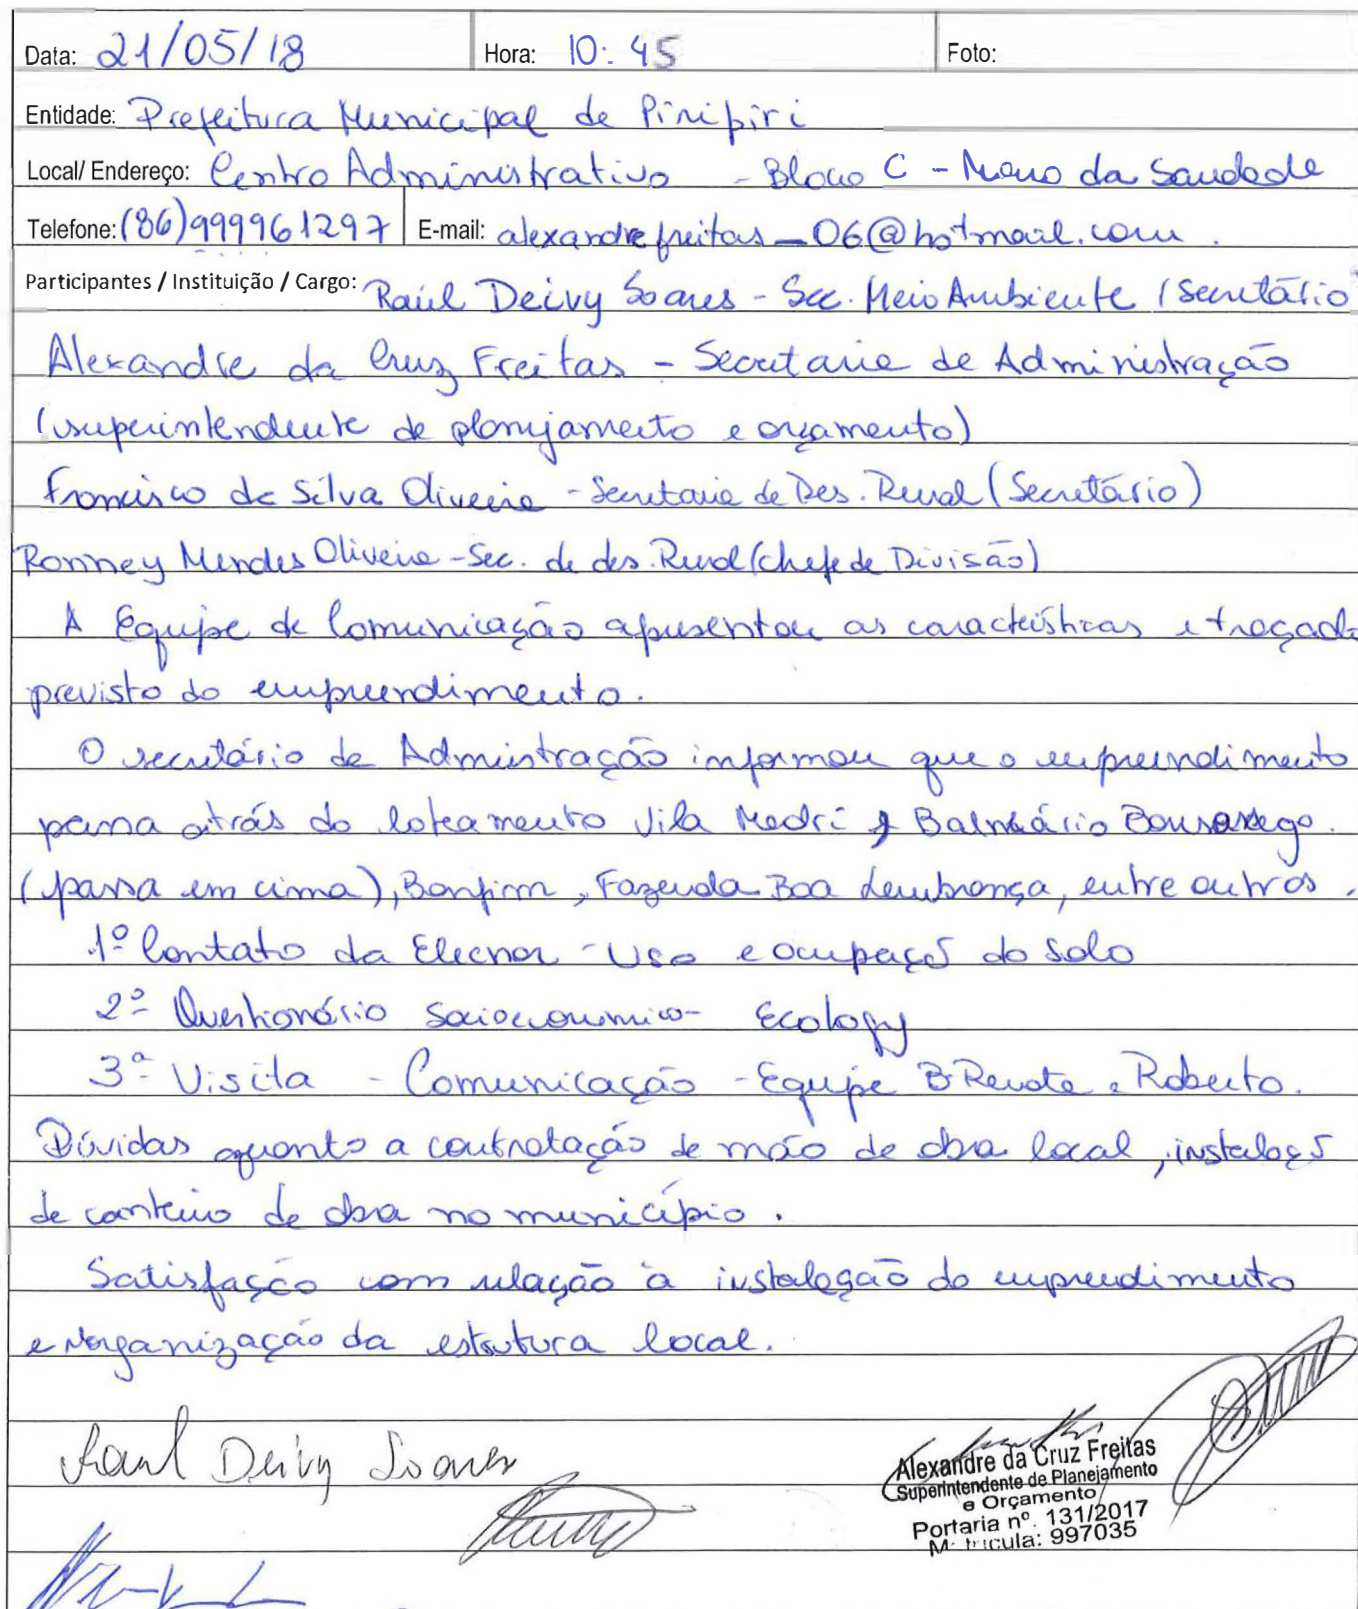 Data: 21/05/18 Hora: 10:45 Foto:
Entidade: Prefeitura Municipal de Piripiri
Local/ Endereço: Centro Administrativo - Bloco C - Morro da Saudade
Telefone: (86)999961297 E-mail: alexandrefreitas_06@hotmail.com.
Participantes / Instituição / Cargo: Raul Deivy Soares - Sec. Meio Ambiente (Secretário
Alexandre da Cruz Freitas - Secretaria de Administração
(superintendente de planejamento e orçamento)
Francisco da Silva Oliveira - Secretaria de Des. Rural (Secretário)
Ronney Mendes Oliveira - Sec. de des. Rural (chefe de Divisão)
A Equipe de Comunicação apresentou as características e traçado
previsto do empreendimento.
O secretário de Administração informou que o empreendimento
passa atrás do loteamento Vila Medri Balneário
(passa em cima), Bonfim, Fazenda Boa Lembrança, entre outros.
1º Contato da Elecnor - Uso e ocupação do Solo
2º Questionário Socioeconomico - Ecology
3ª Visita - Comunicação - Equipe Renata e Roberto.
Dúvidas quanto a contratação de mão de obra local, instalação
de canteiro de obra no município.
Satisfação com relação à instalação do empreendimento
e reorganização da estrutura local.
Raul Deivy Soares
Alexandre da Cruz Freitas
Superintendente de Planejamento
e Orçamento
Portaria nº. 131/2017
Matrícula: 997035